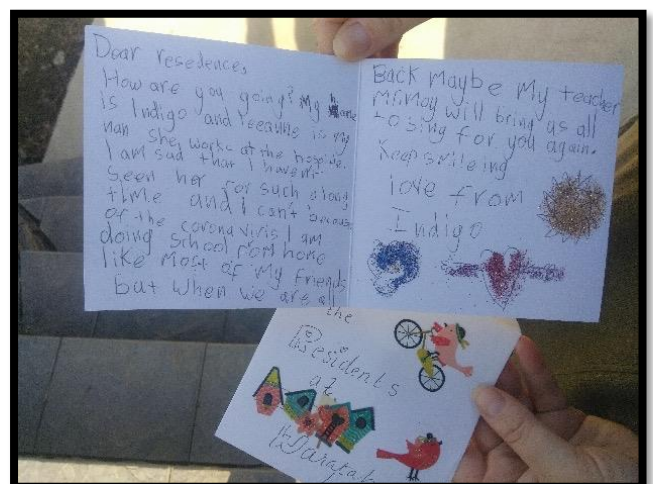 Dear resedences,
How are you going? My name
is Indigo and leeanne is my
nan she works at the hospice.
I am sad that I haven't
seen her for such along
time and I can't because
of the coronaviris I am
doing school fom home
like most of my friends
but when we are all
Back maybe my teacher
Mr.May will bring us all
to sing for you again.
Keep smileing
love from
Indigo
the
Residents
at